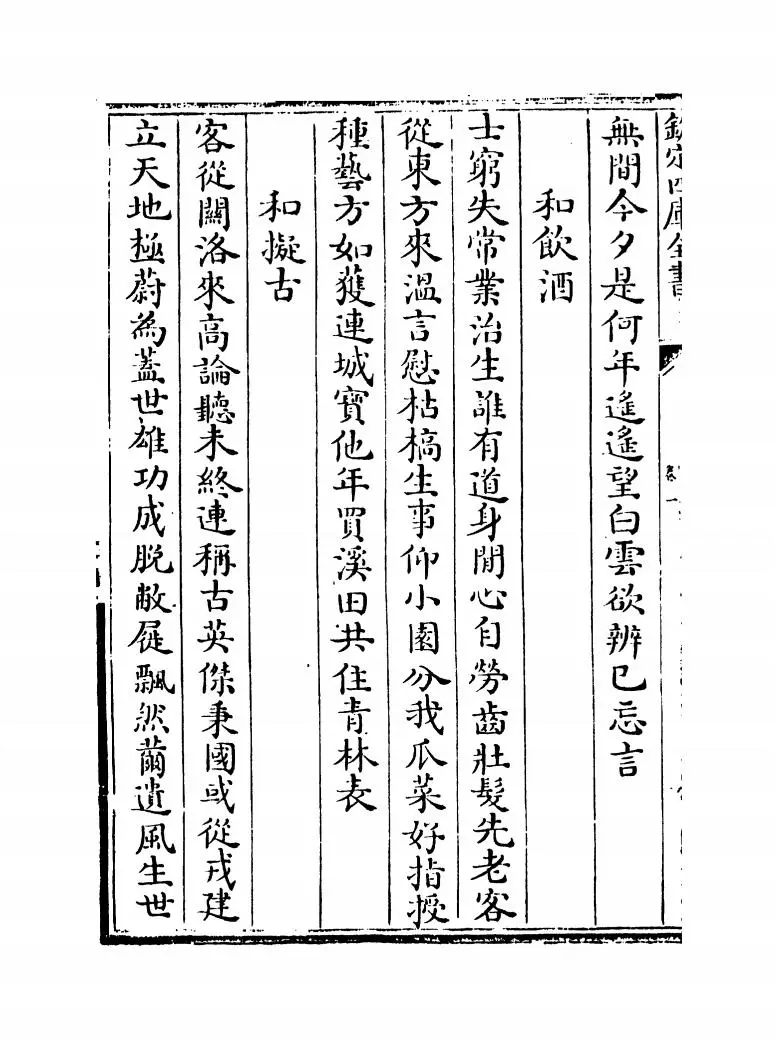 欽定四庫全書
卷一
無間今夕是何年遙遙望白雲欲辨已忘言
和飲酒
士窮失常業治生誰有道身閒心自勞齒壯髮先老客
從東方來溫言慰枯槁生事仰小園分我瓜菜好指授
種藝方如獲連城寶他年買溪田共住青林表
和擬古
客從關洛來高論聽未終連稱古英傑秉國或從戎建
立天地極蔚為蓋世雄功成脫敝屣飄然蕑遺風生世